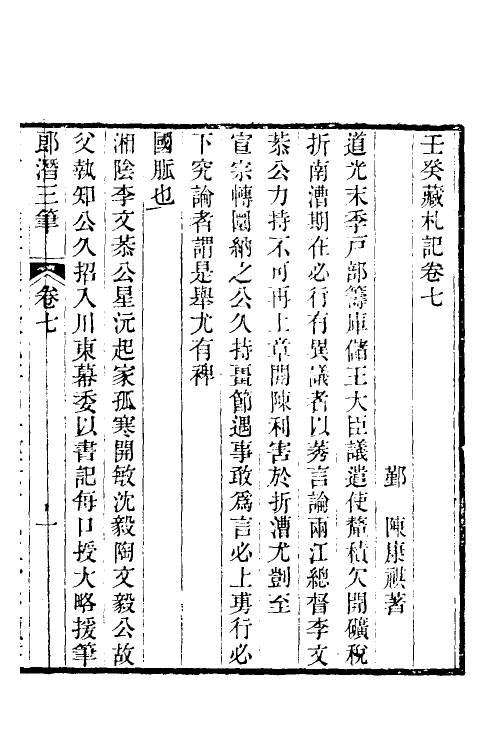 壬癸藏札記卷七
鄞　陳康祺著
道光末季戸部籌庫儲王大臣議遣使釐積欠開礦稅
折南漕期在必行有異議者以莠言論兩江總督李文
恭公力持不可再上章開陳利害於折漕尤剴至
宣宗轉圜納之公久持畺節遇事敢爲言必上剪行必
下究論者謂是舉尤有裨
國脈也
湘陰李文恭公星沅起家孤寒開敏沈毅陶文毅公故
父執知公久招入川東幕委以書記每口授大略援筆
郎潛三筆　卷七　一